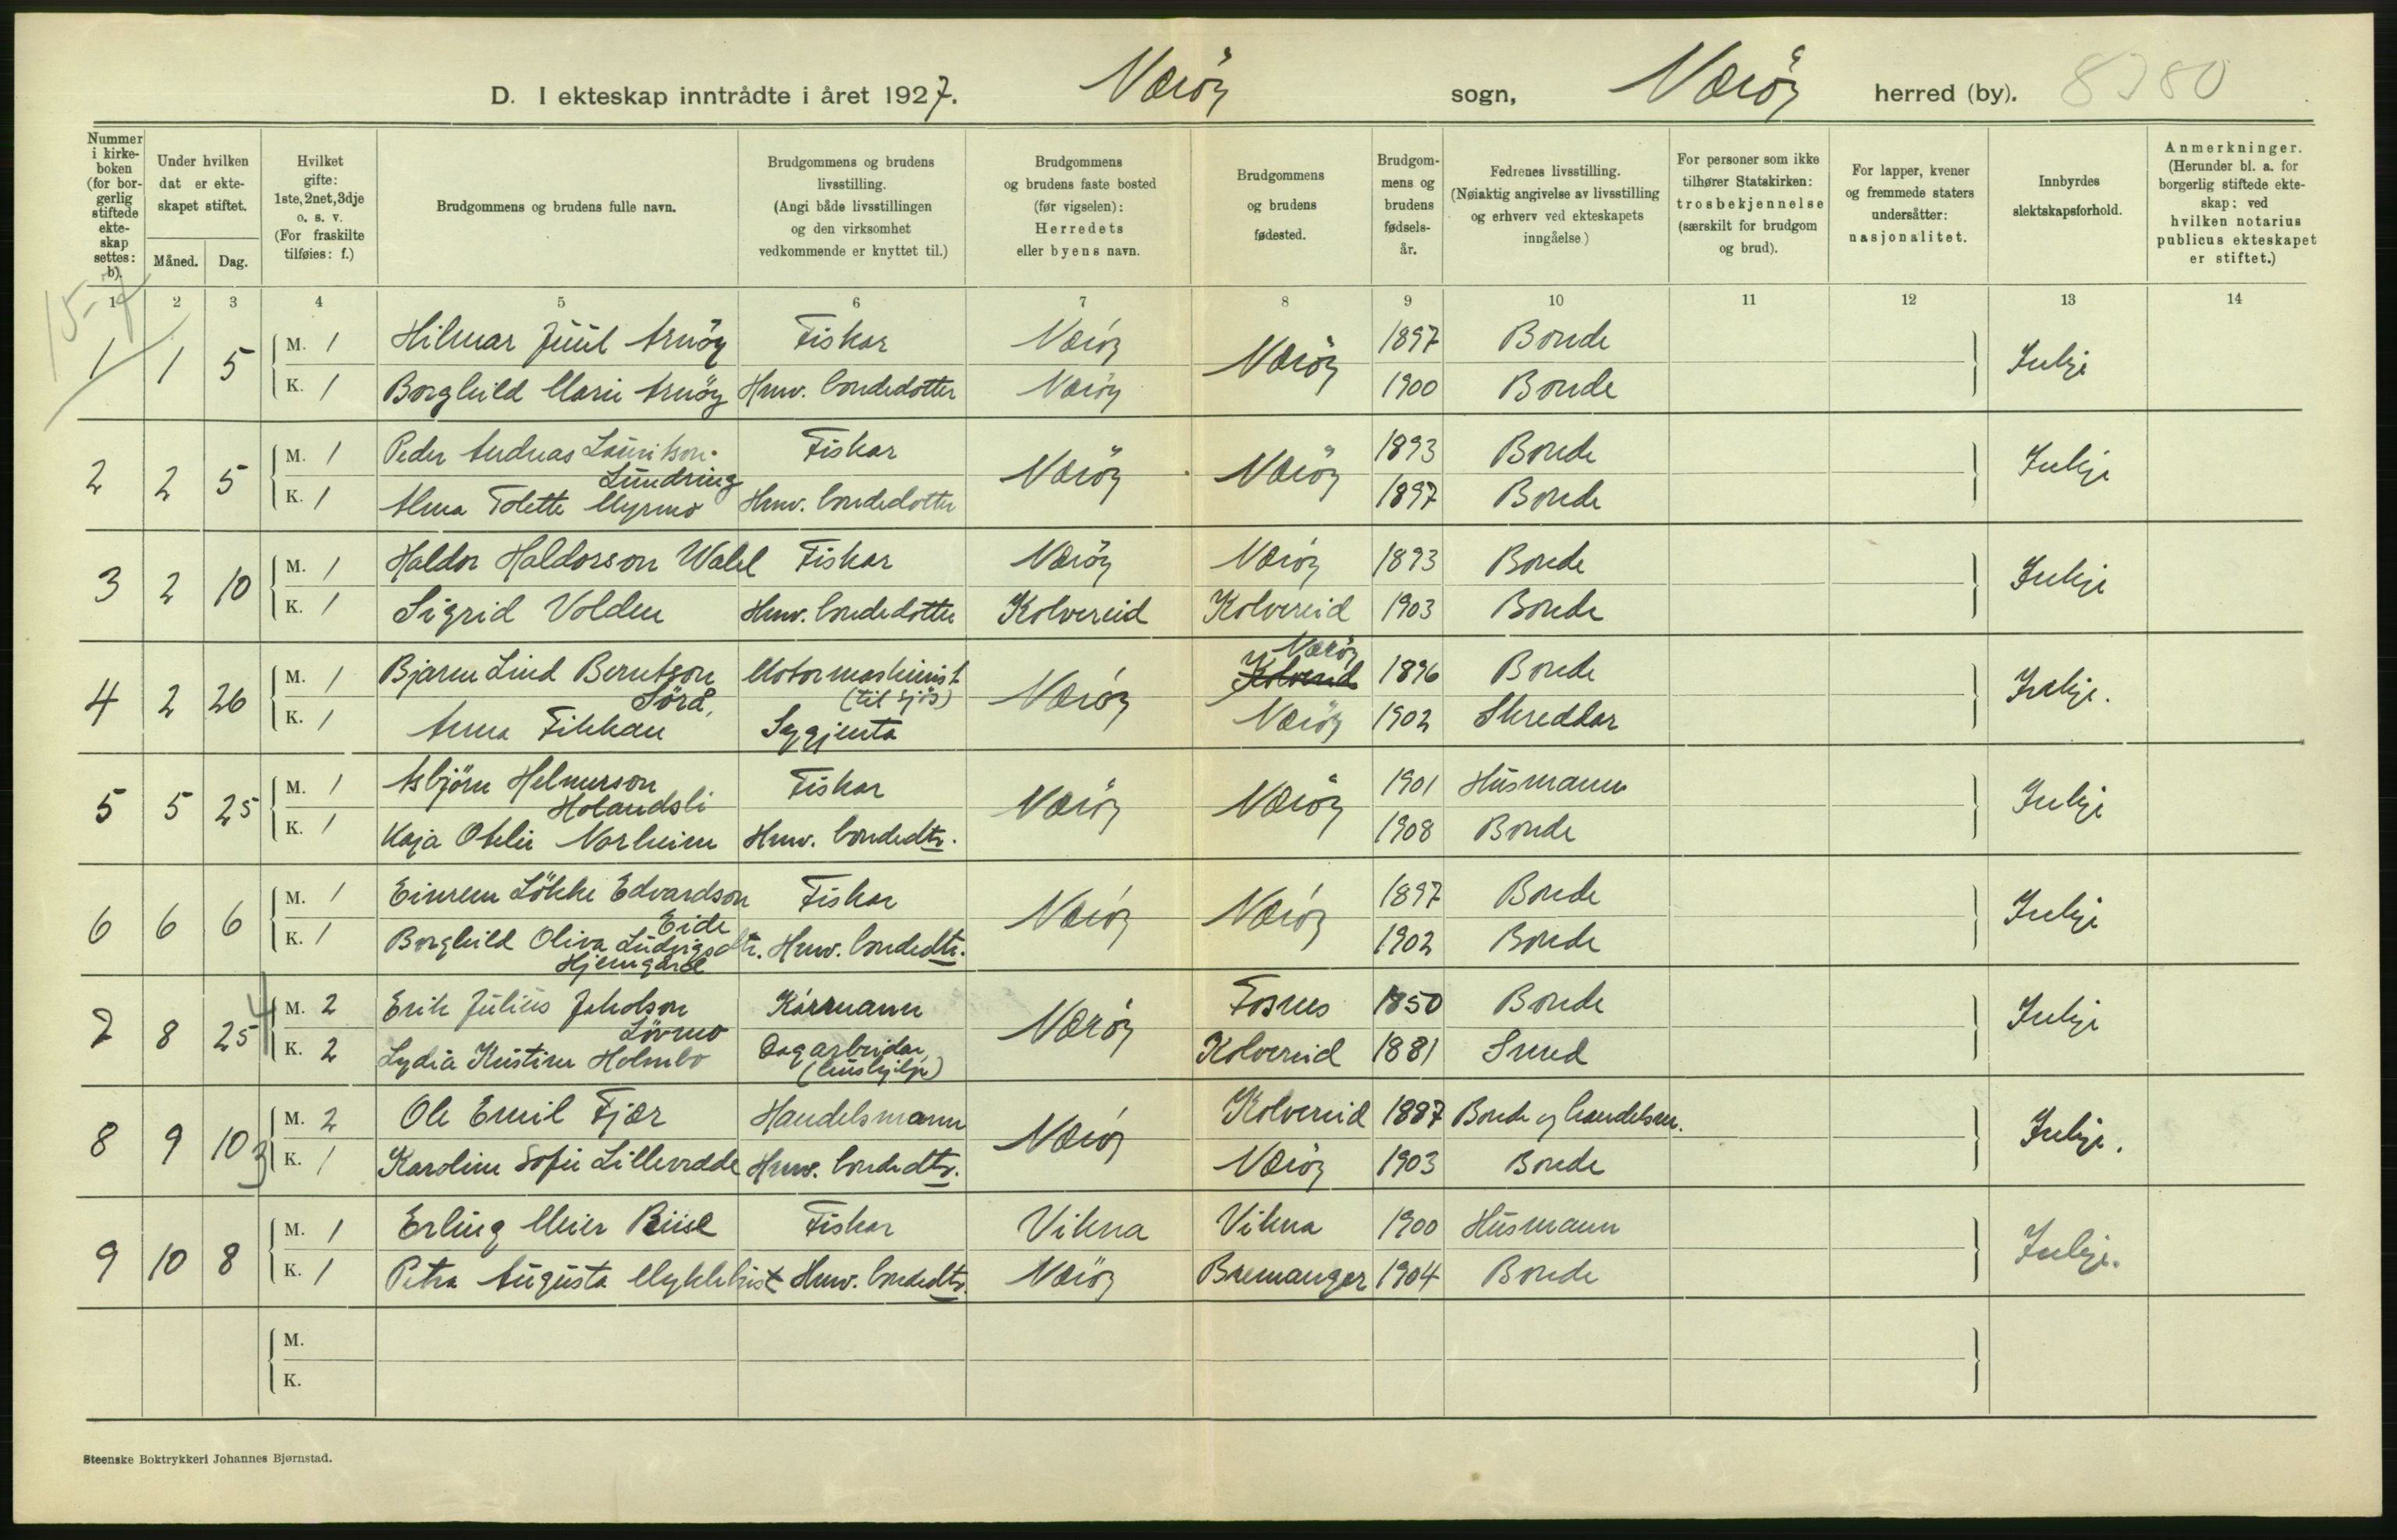 D. I ekteskap inntrådte i året 1927. Nærøy sogn, Nærøy herred (by). 8380
Nummer i kirke-boken (for bor-gerlig stiftede ekte-skap settes: b).
Under hvilken dat er ekte-skapet stiftet.
Måned. Dag.
Hvilket gifte: 1ste, 2net, 3dje o. s. v. (For fraskilte tilføies: f.)
Brudgommens og brudens fulle navn.
Brudgommens og brudens livsstilling. (Angi både livsstillingen og den virksomhet vedkommende er knyttet til.)
Brudgommens og brudens faste bosted (før vigselen): Herredets eller byens navn.
Brudgommens og brudens fødested.
Brudgom-mens og brudens fødsels-år.
Fedrenes livsstilling. (Nøiaktig angivelse av livsstilling og erhverv ved ekteskapets inngåelse.)
For personer som ikke tilhører Statskirken: trosbekjennelse (særskilt for brudgom og brud).
For lapper, kvener og fremmede staters undersåtter: nasjonalitet.
Innbyrdes slektskapsforhold.
Anmerkninger. (Herunder bl. a. for borgerlig stiftede ekte-skap: ved hvilken notarius publicus ekteskapet er stiftet.)
1 2 3 4 5 6 7 8 9 10 11 12 13 14
15-7
1 1 5 M. 1 Hilmar Juul Arnöy Fiskar Næröy Næröy 1897 Bonde Inkje
K. 1 Borghild Marie Arnöy Hmv. bondedotter Næröy 1900 Bonde
2 2 5 M. 1 Peder Andreas Lauritson Fiskar Næröy Næröy 1893 Bonde Inkje
Lundring
K. 1 Alma Tolette Myrmo Hmv. bondedotter 1897 Bonde
3 2 10 M. 1 Haldor Haldorson Wahl Fiskar Næröy Næröy 1893 Bonde Inkje
K. 1 Sigrid Volden Hmv. bondedotter Kolvereid Kolvereid 1903 Bonde
Næröy
4 2 26 M. 1 Bjarne Lind Berntson Motormaskinist Næröy Kolvereid 1896 Bonde Inkje.
Sörå, (til sjös)
K. 1 Anna Fikkan Syggjenta Næröy 1902 Skreddar
5 5 25 M. 1 Asbjörn Helmerson Fiskar Næröy Næröy 1901 Husmann Inkje
Holandsli
K. 1 Kaja Otelie Norheim Hmv. bondedtr. 1908 Bonde
6 6 6 M. 1 Einrem Lökke Edvardson Fiskar Næröy Næröy 1897 Bonde Inkje
Eide
K. 1 Borghild Oliva Ludvigsdtr. Hmv. bondedtr. 1902 Bonde
Hjemgård
7 8 25 4 M. 2 Erik Julius Jakobson Kårmann Næröy Fosnes 1850 Bonde Inkje
Lövmo
K. 2 Lydia Kristine Holmbo Dagarbeidar Kolvereid 1881 Smed
(hushjelp)
8 9 10 3 M. 2 Ole Emil Fjær Handelsmann Næröy Kolvereid 1887 Bonde og handelsm. Inkje.
K. 1 Karoline Sofie Lillevedde Hmv. bondedtr. Næröy 1903 Bonde
9 10 8 M. 1 Erling Meier Fiskar Vikna Vikna 1900 Husmann Inkje.
K. 1 Petra Augusta Myklebust Hmv. bondedtr. Næröy Bremanger 1904 Bonde
M.
K.
Steenske Boktrykkeri Johannes Bjørnstad.